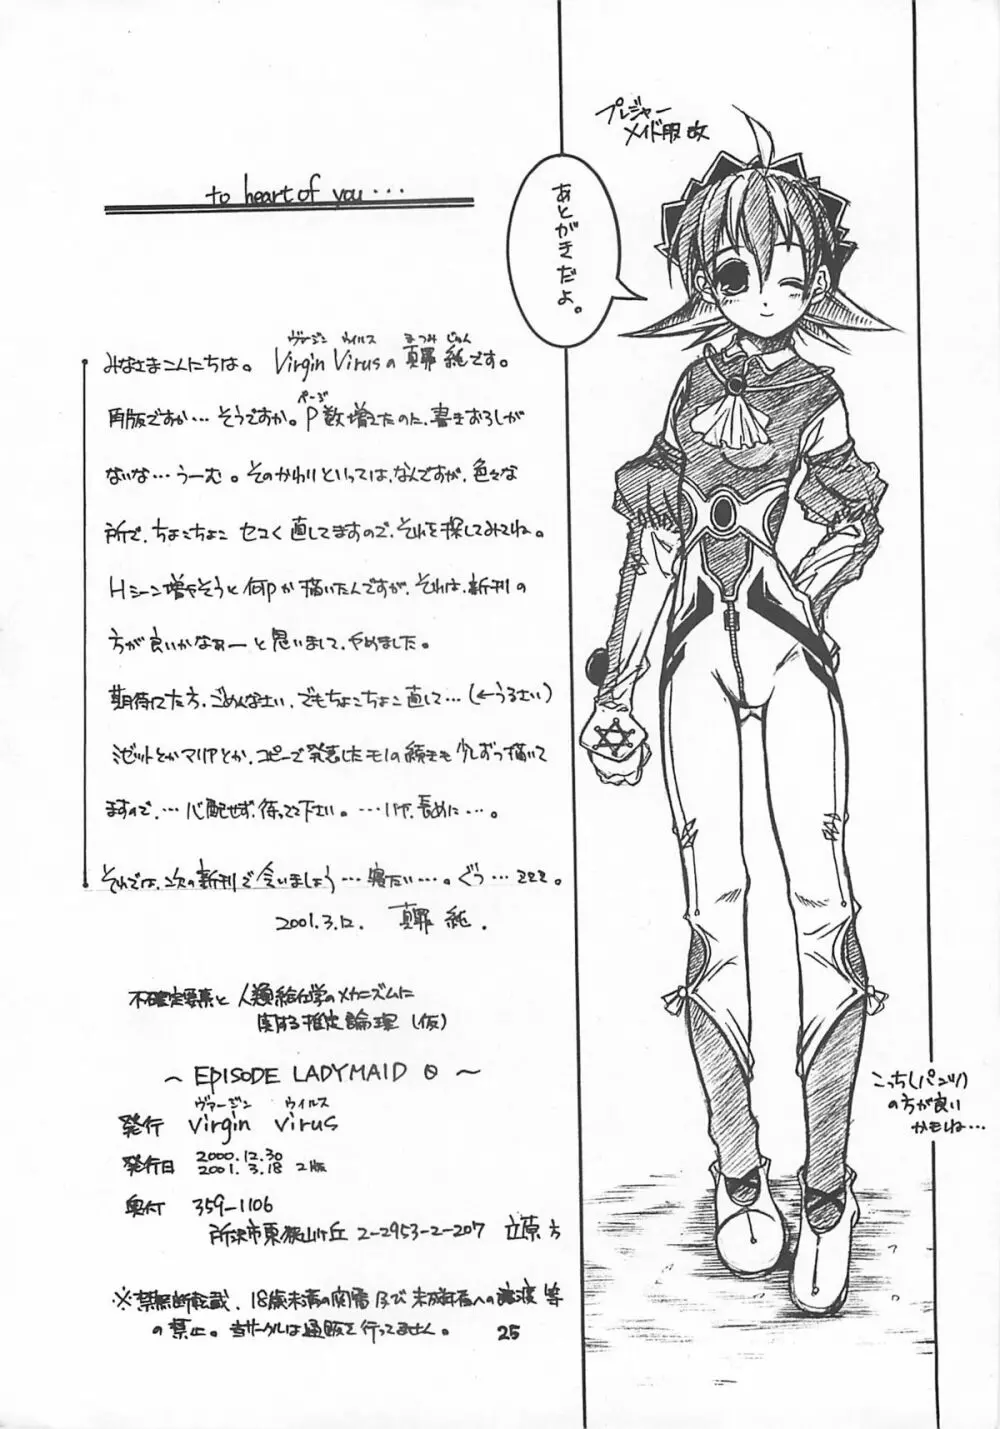 to heart of you...
プレジャー
メイド服 改
あとがきだよ。
ヴァージン ウイルス まつみ じゅん
みなさまこんにちは。Virgin Virusの真罪 純です。
ページ
再版ですか…そうですか。P数増えたのに、書きおろしが
ないな…うーむ。そのかわりといっては、なんですが、色々な
所で、ちょこちょこ セコく 直してますので、それを探してみてね。
Hシーン増やそうと何Pか描いたんですが、それは、新刊の
方が良いかなぁーと思いまして、やめました。
期待してた方、ごめんなさい、でもちょこちょこ直して…(←うるさい)
ミゼットとかマリアとか、コピーで発表したモノの続きも少しずつ描いて
ますので、…心配せず、待ってて下さい。…いや、長めに…。
それでは、次の新刊で会いましょう…寝たい…。ぐぅ…zzz。
2001.3.12. 真罪 純.
不確定要素と人類給仕学のメカニズムに
関する推定論理(仮)
～ EPISODE LADYMAID 0 ～
ヴァージン ウイルス
発行 virgin virus
発行日 2000.12.30
2001. 3.18 2版
奥付 359-1106
所沢市東狭山ヶ丘 2-2953-2-207 立原 方
※禁無断転載、18歳未満の閲覧及び未成年者への譲渡 等
の禁止。当サークルは通販を行ってません。
25
こっち(パンツ)
の方が良い
かもね…